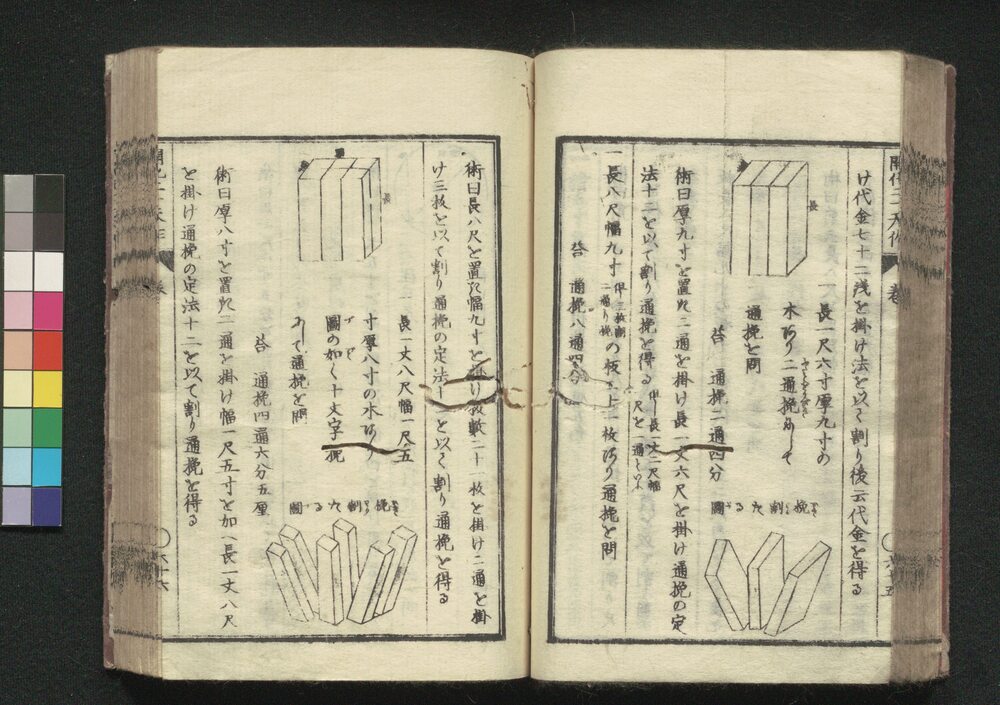 け代金七十二銭を掛け法を以て割り後云代金を得る
長
長一尺六寸厚九寸の
木あり二通挽にして
通挽を問
答　通挽二通四分
挽割たる圖
術曰厚九寸を置た二通を掛け長一丈六尺を掛け通挽の定
法十二を以て割り通挽を得る
一長八尺幅九寸の板二十一枚あり通挽を問
答　通挽八通四分
六十五
術曰長八尺を置た幅九寸を掛け枚數二十一枚を掛け二通を掛
け三枚を以て割り通挽の定法十二を以て割り通挽を得る
長
長一丈八尺幅一尺五
寸厚八寸の木あり
圖の如く十文字に挽
て通挽を問
答　通挽四通六分五厘
挽割たる圖
術曰厚八寸を置た二通を掛け幅一尺五寸を加へ長一丈八尺
を掛け通挽の定法十二を以て割り通挽を得る
六十六